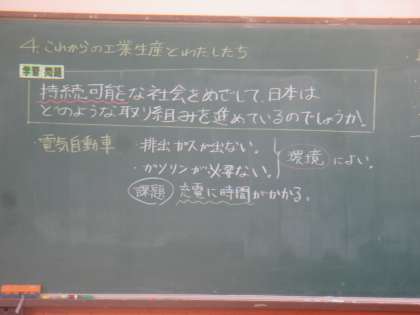 4.これからの工業生産とわたしたち
学習 問題
持続可能な社会をめざして、日本は
どのような取り組みを進めているのでしょうか。
電気自動車 ・排出ガスが出ない。
・ガソリンが必要ない。 環境によい。
課題 充電に時間がかかる。